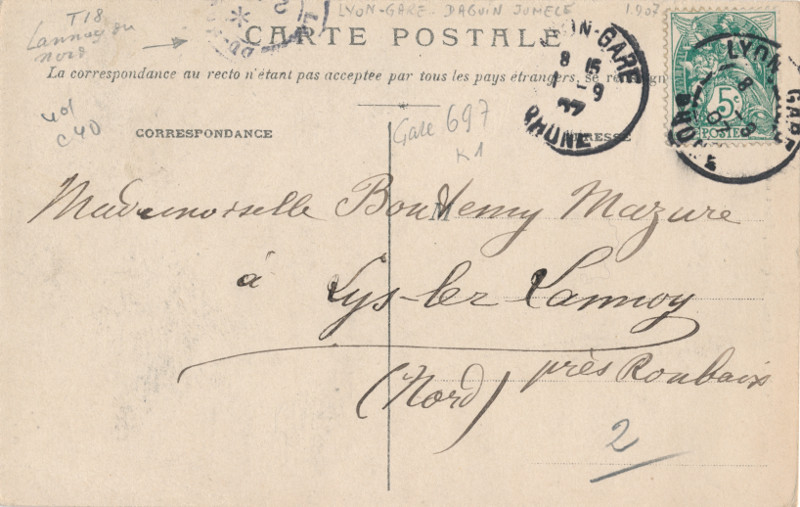 LYON-GARE DAGUIN JUMELÉ 1.907
T18
Lannoy du
Nord
CARTE POSTALE
La correspondance au recto n'étant pas acceptée par tous les pays étrangers, se
vol
C40
Gare 697
K1
CORRESPONDANCE
LYON-GARE
8 15
1 -9
07
RHONE
LYON-GARE
RHONE
5c
POSTES
Mademoiselle Bonthemy Mazure
à Lys-lez-Lannoy
près Roubaix
(Nord)
2